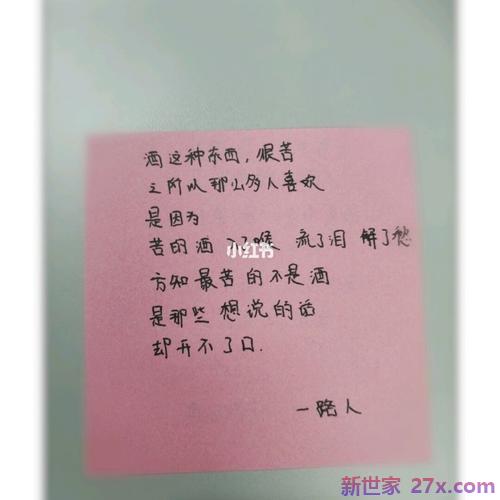 酒这种东西，很苦
之所以那么多人喜欢
是因为
苦的酒 下了喉 流了泪 解了愁
方知最苦的不是酒
是那些想说的话
却开不了口.
一路人
小红书
新世家 27x.com